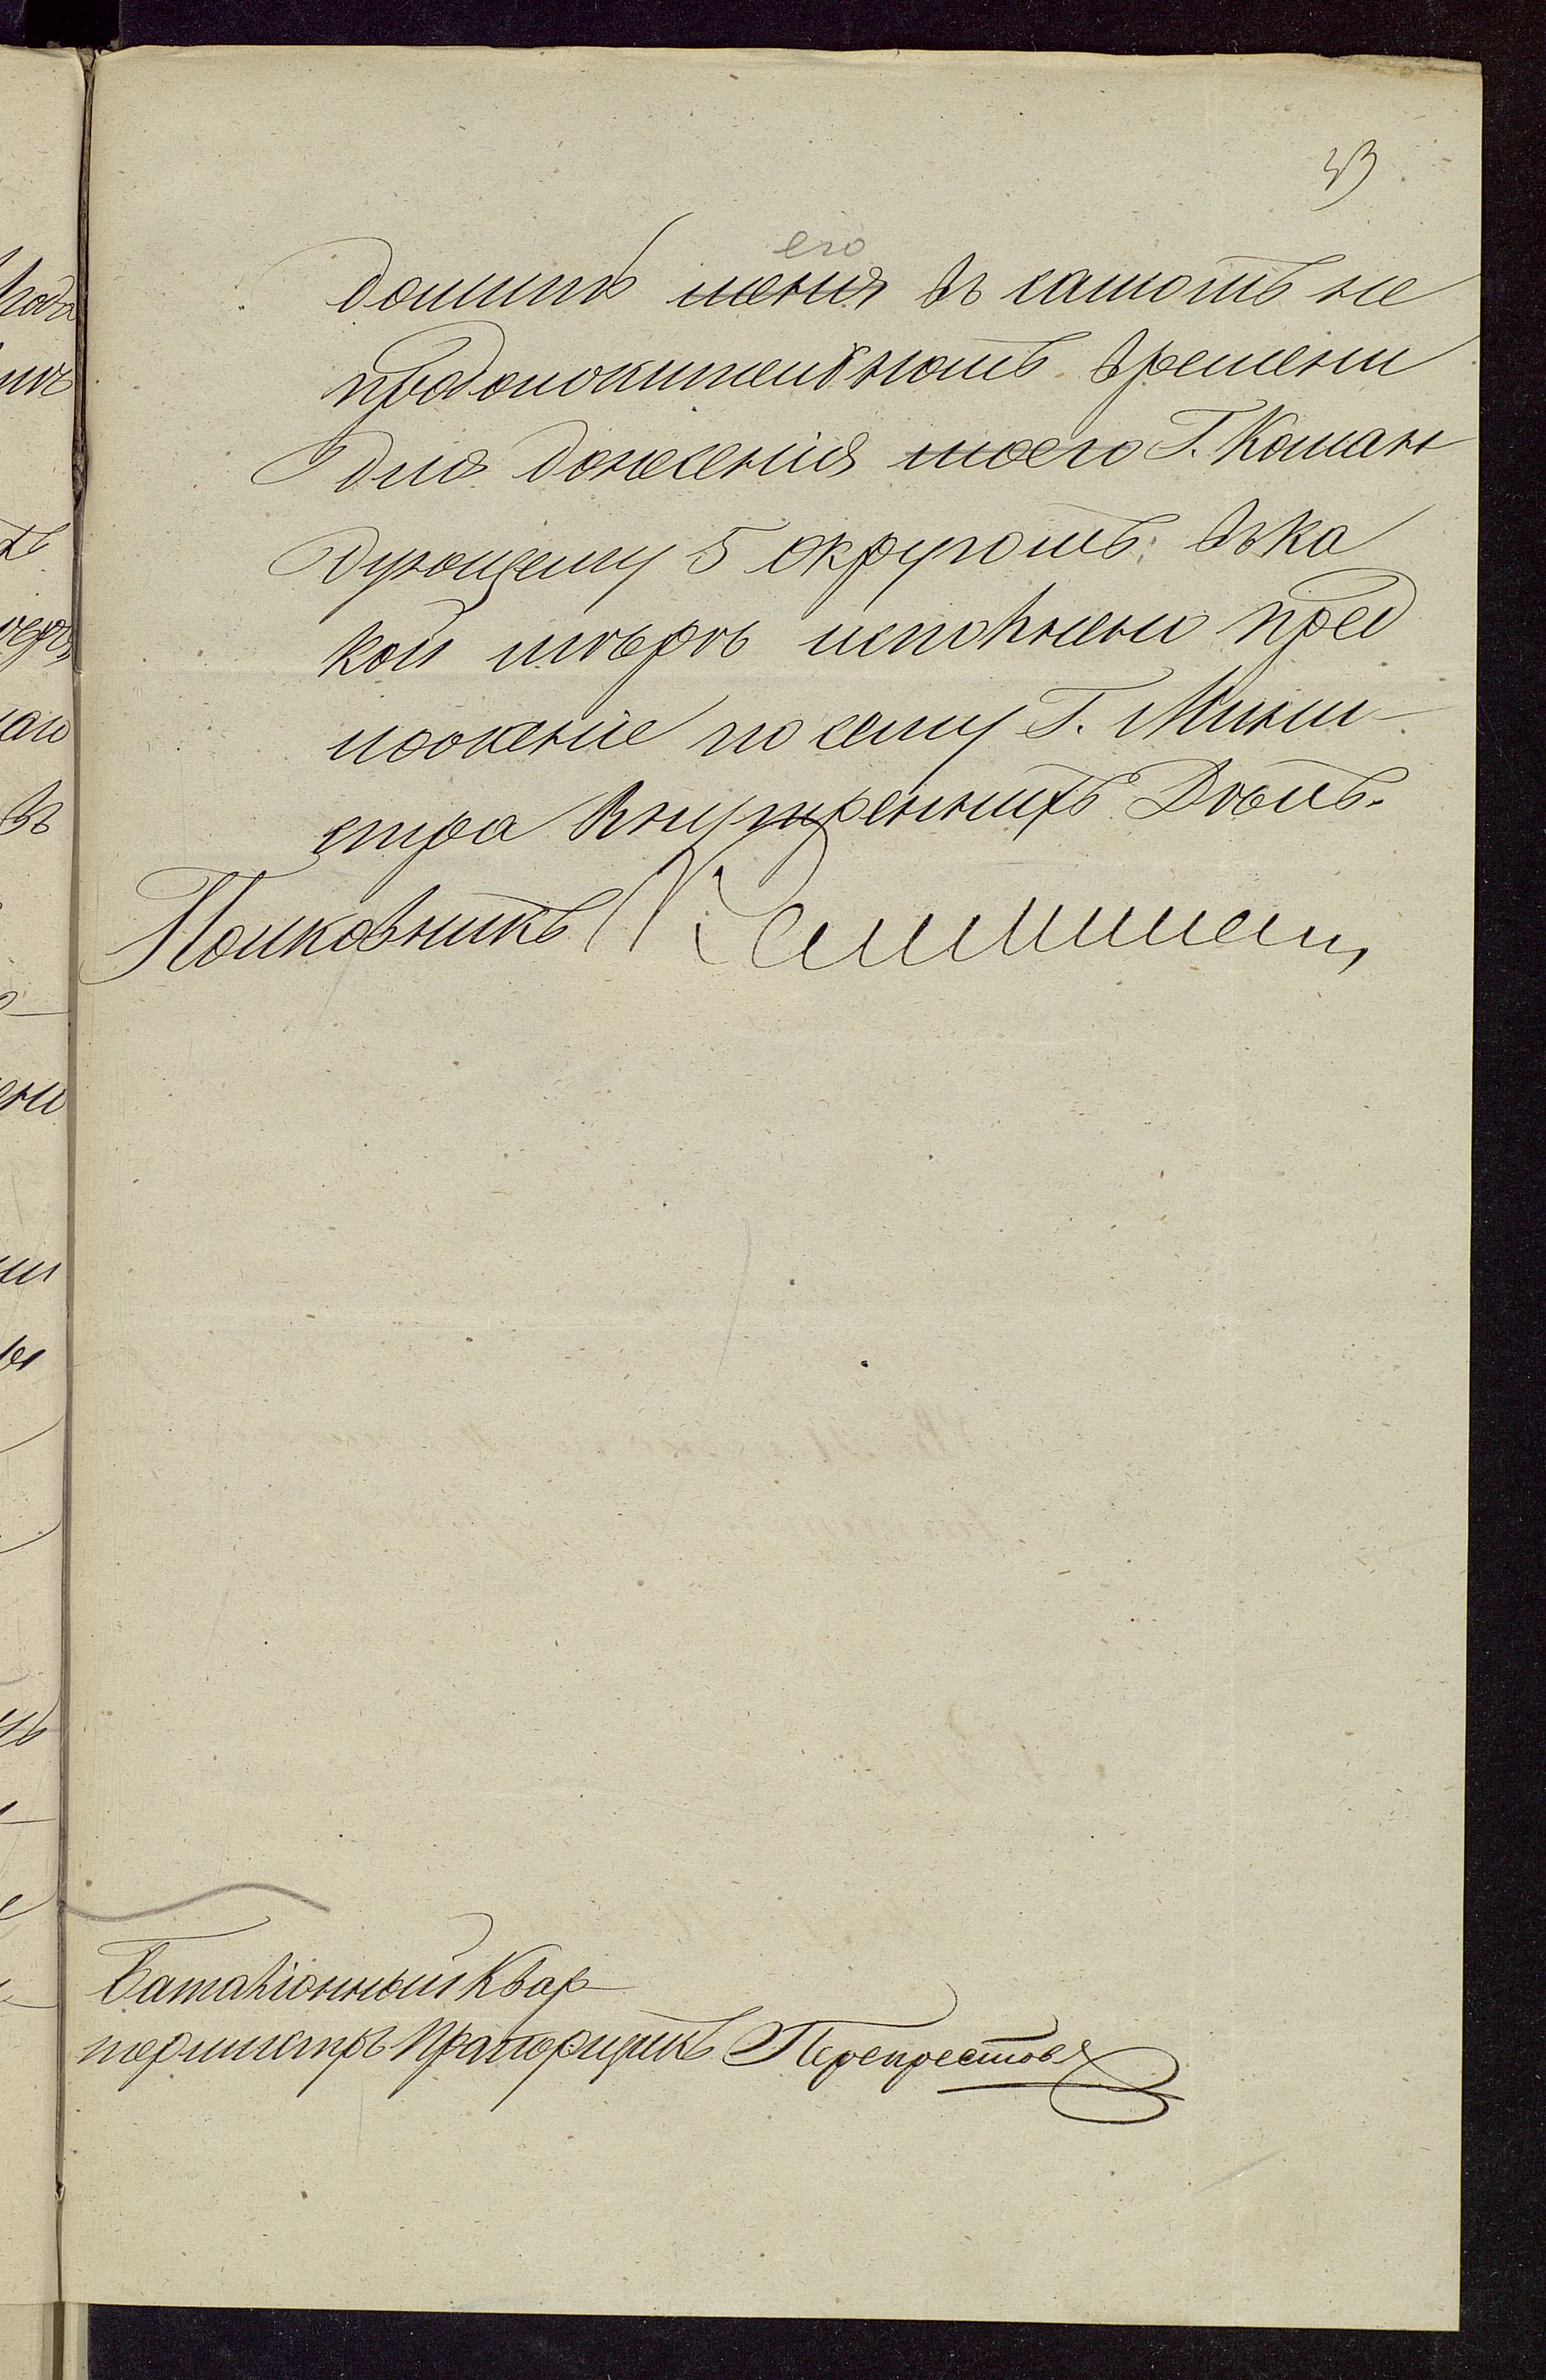 его
домить меня въ самомъ не
продолжительномъ времени
для донесенія моего Г. Коман
дующему 5 округомъ: въ ка
кой мѣрѣ исполнено пред
ложеніе по сему Г. Мини-
стра Внутреннихъ Дѣлъ.
Полковникъ
Баталіонный Квар-
термистръ Прапорщикъ Перекрестовъ